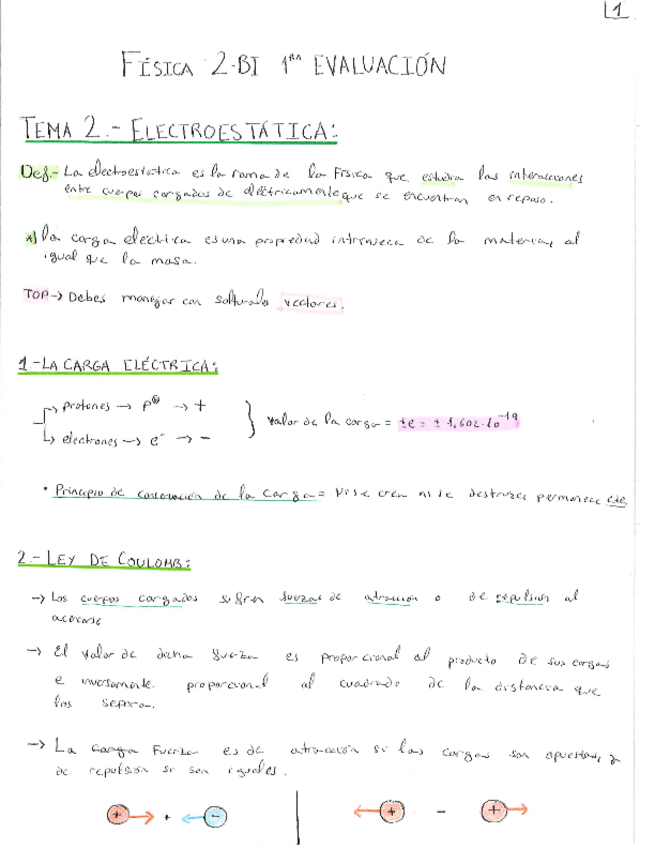 1
FÍSICA 2-BI 1ᴿᴬ EVALUACIÓN
TEMA 2.- ELECTROESTÁTICA:
Def.- La electroestatica es la rama de la Física que estudia las interacciones
entre cuerpos cargados de eléctricamente que se encuentran en reposo.
A) La carga electrica es una propiedad intrinseca de la materia, al
igual que la masa.
TOP-> Debes manejar con soltura los vectores.
1.-LA CARGA ELÉCTRICA:
-> protones -> p⊕ -> +
-> electrones -> e⁻ -> -
} Valor de la carga = ±e = ± 1,602·10⁻¹⁹
• Principio de conservación de la carga = Ni se crea ni se destruye permanece cte.
2.- LEY DE COULOMB:
-> Los cuerpos cargados sufren fuerzas de atracción o de repulsion al
acercarse
-> El valor de dicha fuerza es proporcional al producto de sus cargas
e inversamente proporcional al cuadrado de la distancia que
las separa.
-> La Fuerza es de atracción si las cargas son opuestas, y
de repulsión si son iguales.
+ + - + - +